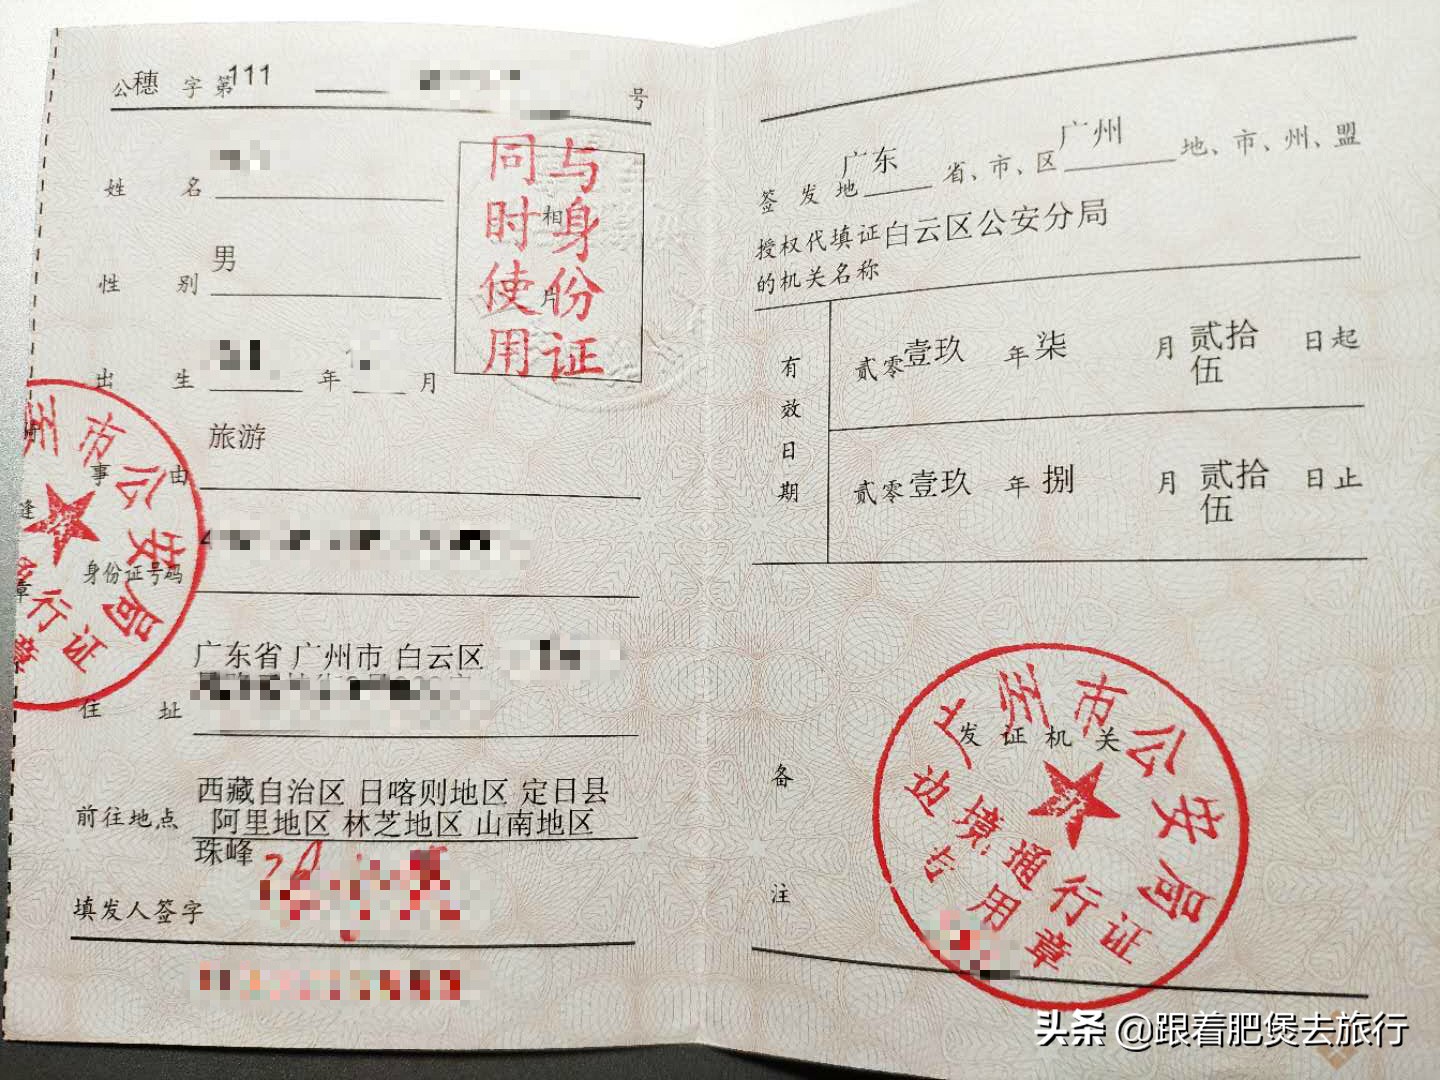 公穗 字 第111 号
姓 名
性 别 男
出 生 年 月
相
片
与身份证
同时使用
事 由 旅游
身份证号码
住 址 广东省 广州市 白云区
前往地点 西藏自治区 日喀则地区 定日县
阿里地区 林芝地区 山南地区
珠峰
填发人签字
州市公安局
行证
章
签 发 地 广东 省、市、区 广州 地、市、州、盟
授权代填证 白云区公安分局
的机关名称
有效日期
贰零壹玖 年 柒 月 贰拾
伍 日起
贰零壹玖 年 捌 月 贰拾
伍 日止
备
注
发 证 机 关
广州市公安局
边境通行证
专用章
头条 @跟着肥煲去旅行